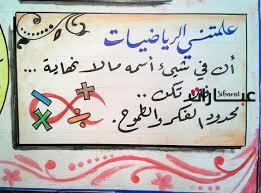 علمتني الرياضيات
أن في شيئ أسمه مالا نهاية ...
فلا تكن ..
محدود الفكر والطموح .
عبارات
Sibarat